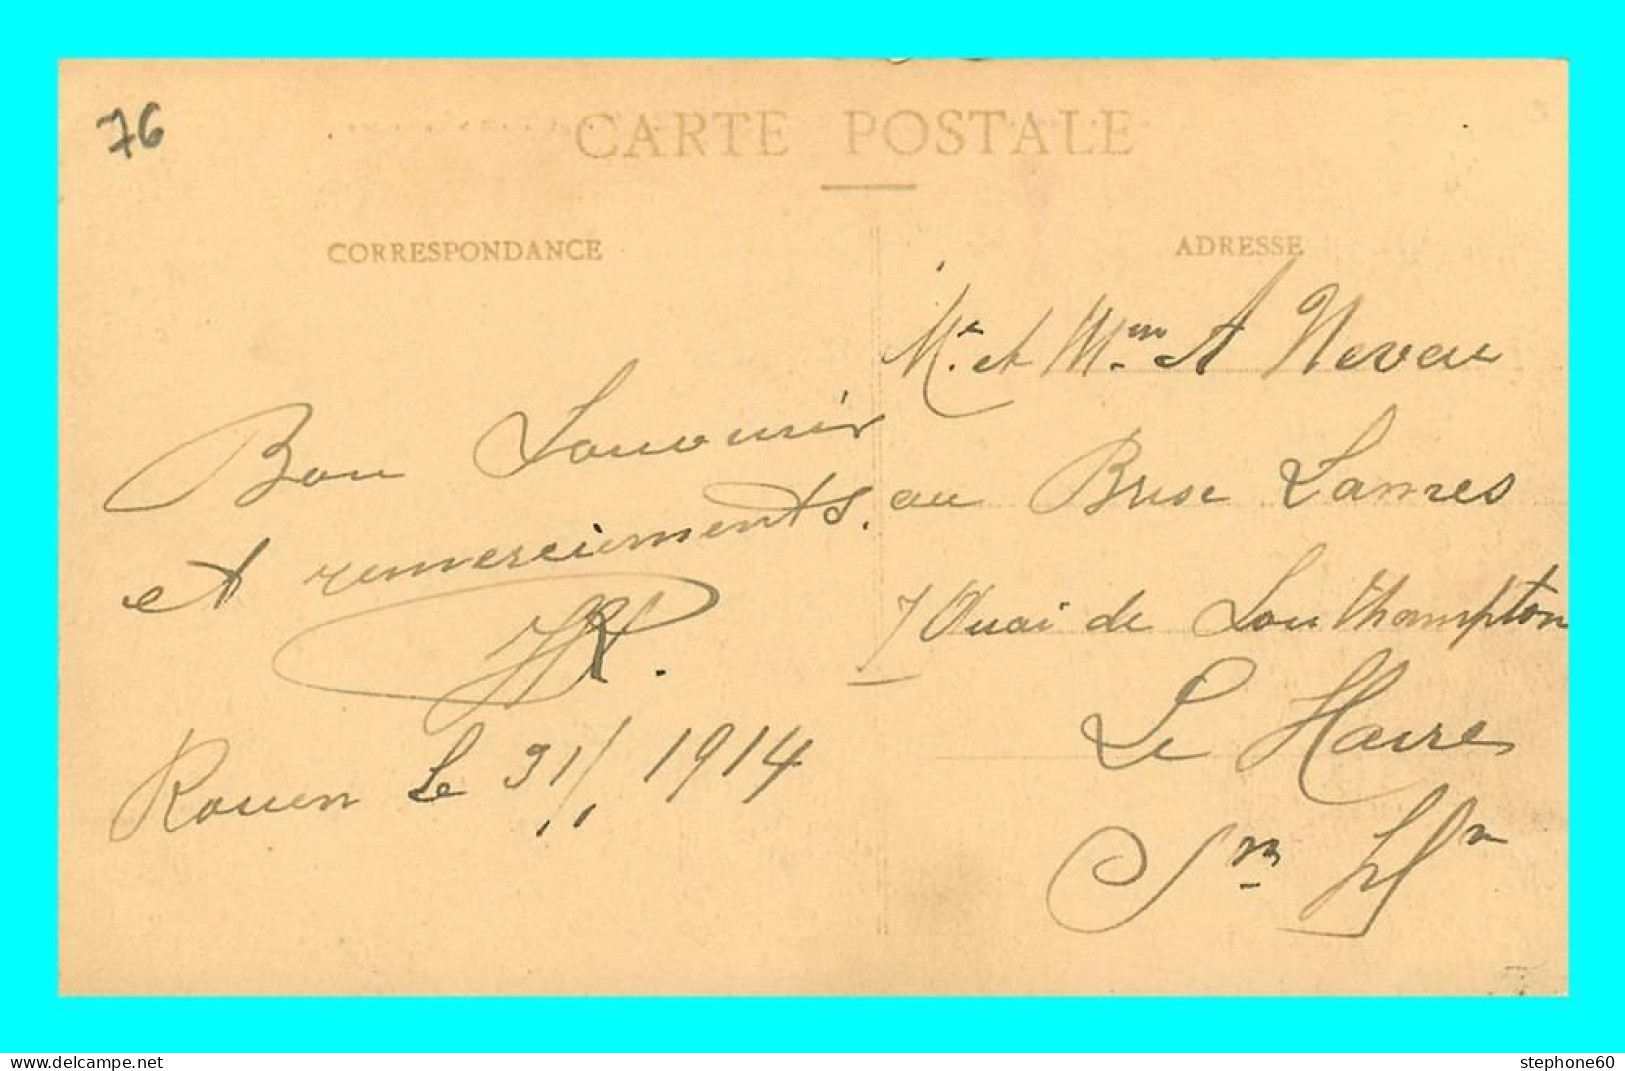 76
CARTE POSTALE
CORRESPONDANCE
Bon Souvenir
et remerciements.
Rouen Le 31/ 1914
ADRESSE
Mr. et Mme A Neveu
au Brise Lames
7 Quai de Southampton
Le Havre
Sne Infre
www.delcampe.net
stephone60